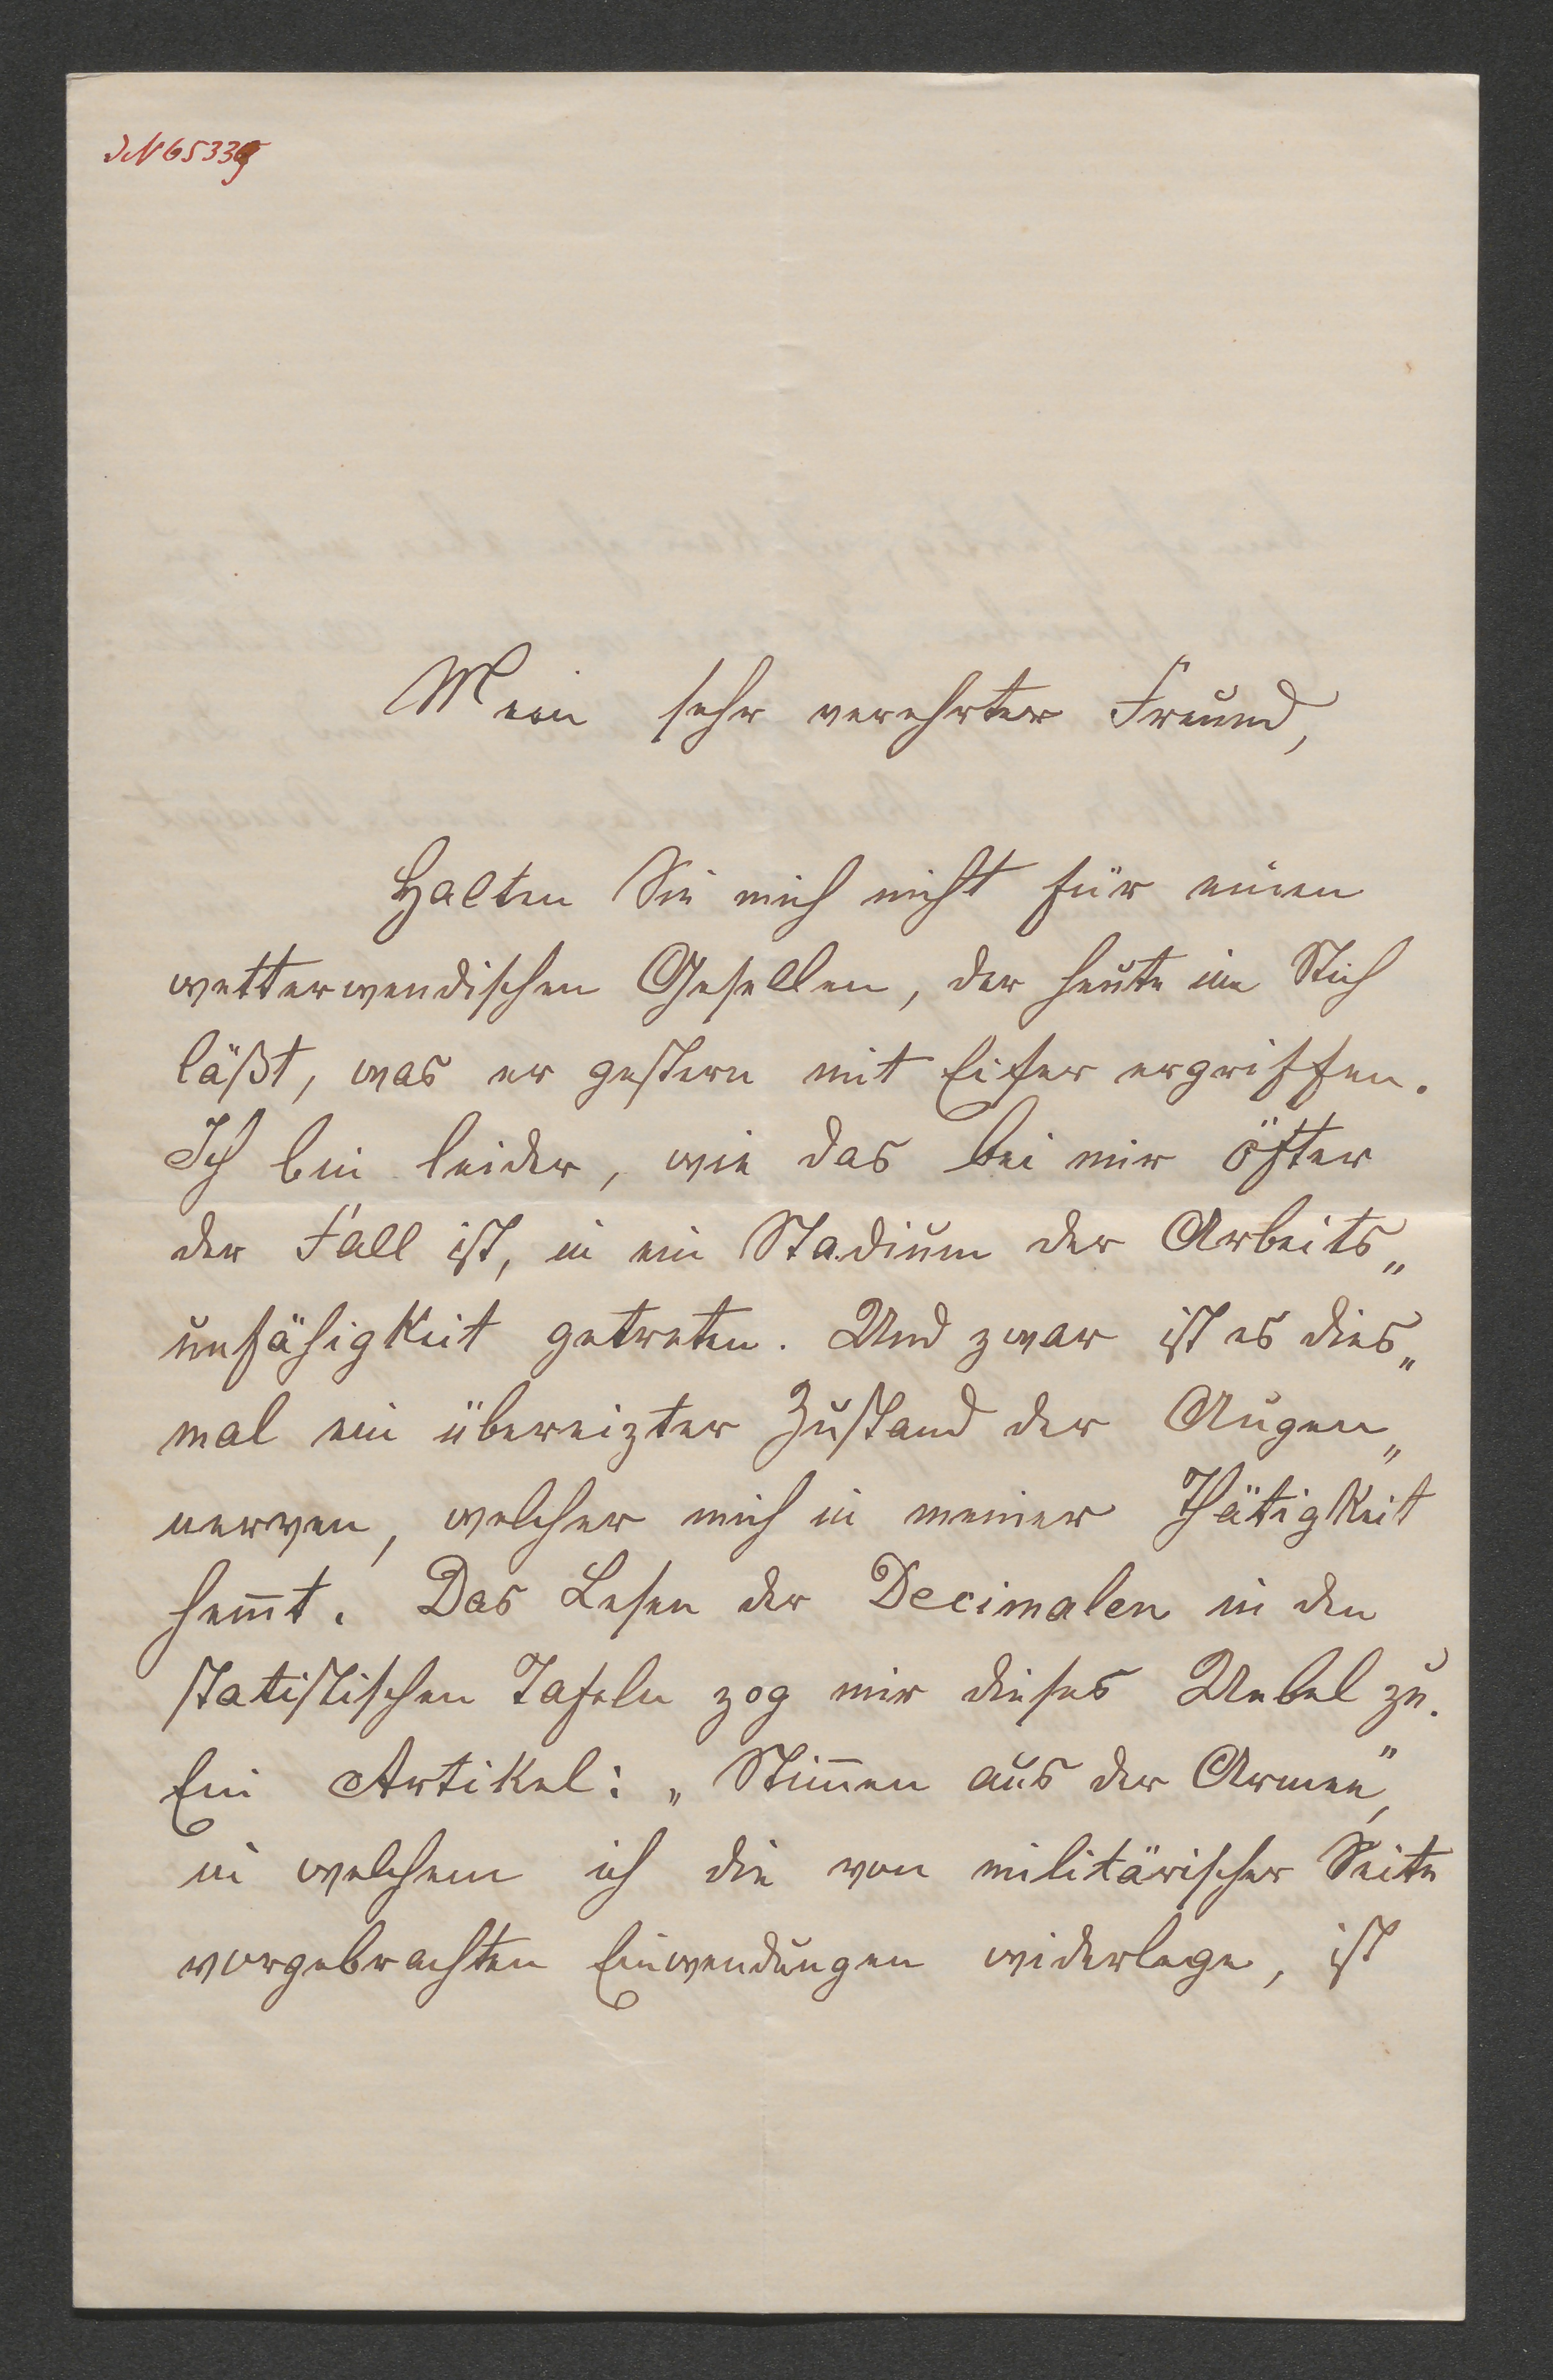 JN 65339
Mein sehr verehrter Freund,
Halten Sie mich nicht für einen
wetterwendischen Gesellen, der heute im Stich
läßt, was er gestern mit Eifer ergriffen.
Ich bin leider, wie das bei mir öfter
der Fall ist, in ein Stadium der Arbeits„
unfähigkeit getreten. Und zwar ist es dies„
mal ein übereizter Zustand der Augen„
nerven, welcher mich in meiner Thätigkeit
hem̄t. Das Lesen der Decimalen in den
statistischen Tafeln zog mir dieses Uebel zu.
Ein Artikel: „Stim̄en aus der Armee“,
in welchem ich die von militärischer Seite
vorgebrachten Einwendungen widerlege, ist